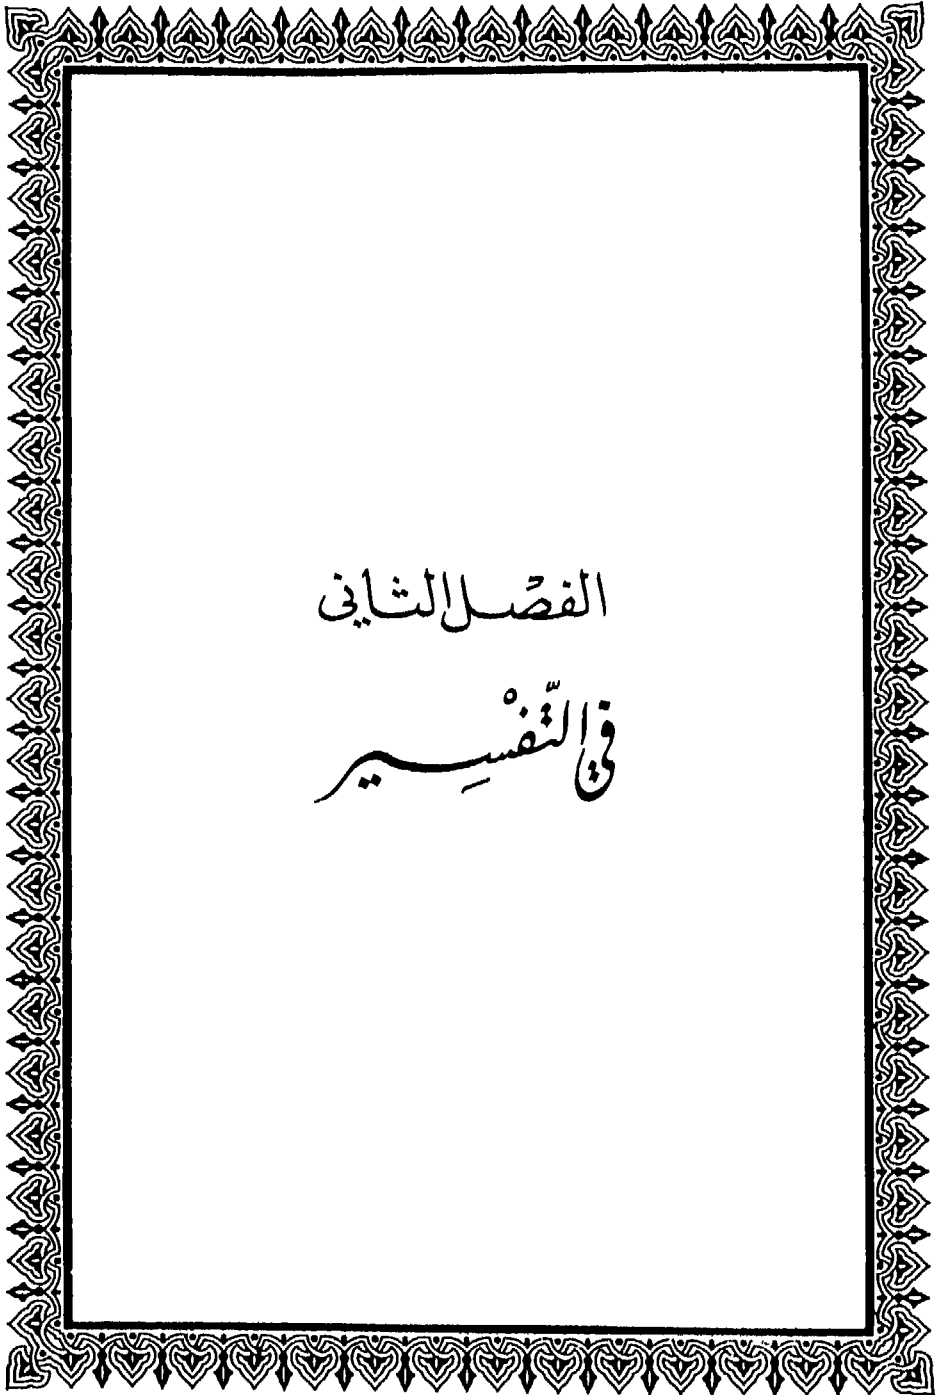 الفصْل الثاني
في التّفْسِير